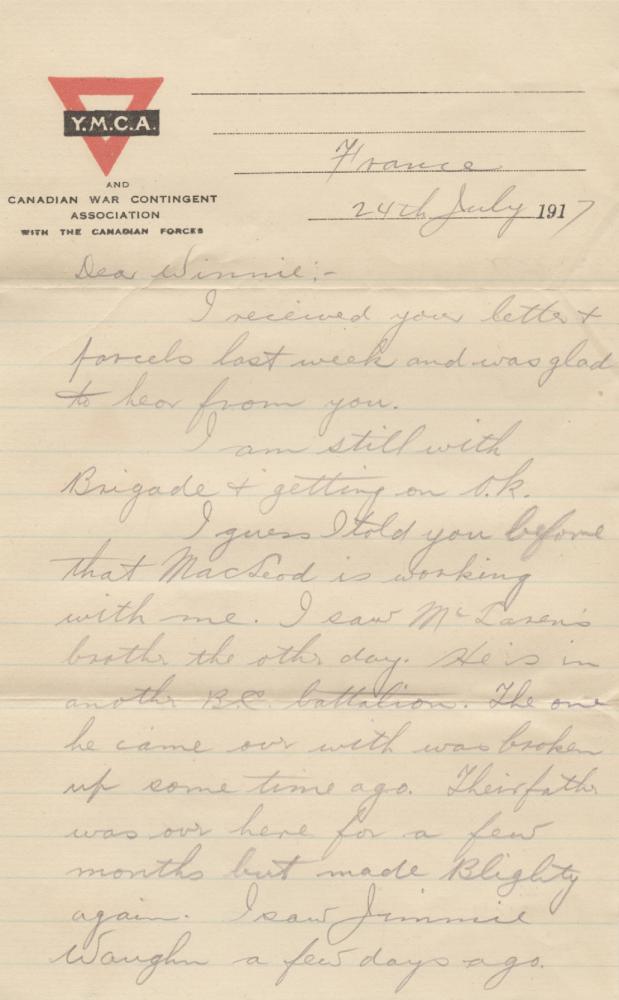 Y.M.C.A.
AND
CANADIAN WAR CONTINGENT
ASSOCIATION
WITH THE CANADIAN FORCES
France
24th July 1917
Dear Winnie:-
I received your letter &
parcels last week and was glad
to hear from you.
I am still with
Brigade & getting on O.K.
I guess I told you before
that MacLeod is working
with me. I saw McLaren's
brother the other day. He is in
another B.C. battalion. The one
he came over with was broken
up some time ago. Their father
was over here for a few
months but made Blighty
again. I saw Jimmie
Vaughn a few days ago.